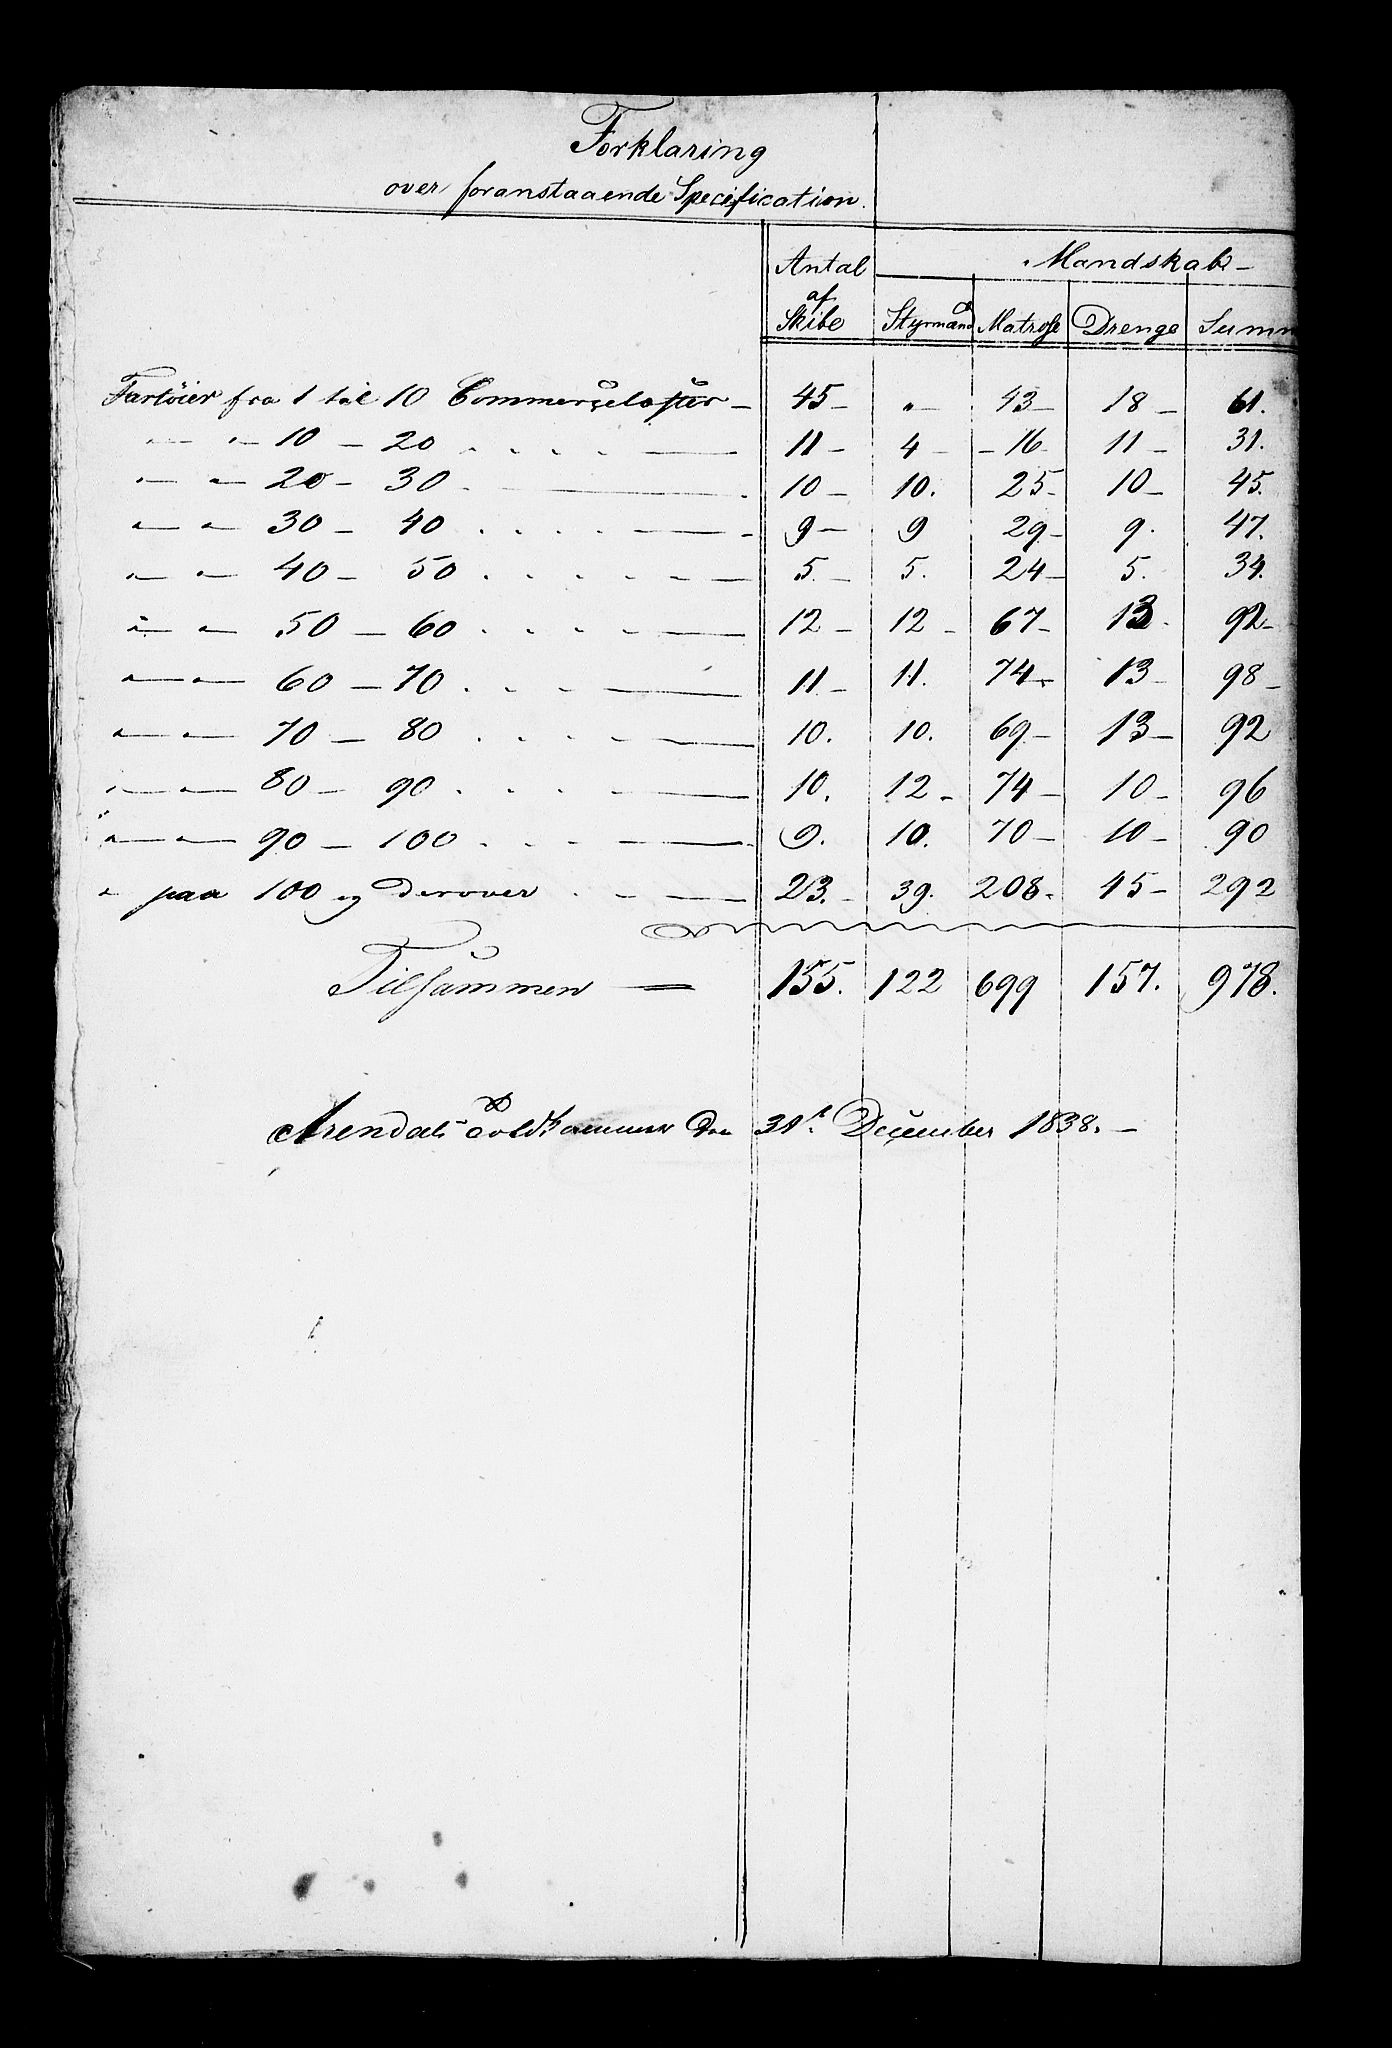 Forklaring
over foranstaaende Specification.
Antal af Skibe
Mandskab-
Styrmænd Matrose Drenge Summ
Fartöier fra 1 til 10 Commercelæster - 45- " - 43- 18- 61.
" - " - 10 - 20 . . . . - 11- 4- -16- 11- 31.
" - " - 20 - 30 . - 10- 10. 25- 10- 45.
" - " - 30 - 40 . . . . - 9- 9 29- 9. 47.
" - " - 40 - 50 . . . . - 5.- 5. 24- 5. 34.
" - " - 50 - 60 . . . . - 12- 12- 67- 13. 92-
" - " - 60 - 70 . . . - 11- 11. 74- 13- 98-
" - " - 70 - 80 . . . . - 10. 10. 69- 13- 92
" - " - 80 - 90 . . . . - 10. 12- 74- 10- 96
" - " - 90 - 100 . . . - 9. 10. 70- 10- 90
" paa 100 og derover . . - 23.- 39. 208- 45- 292
Tilsammen — 155. 122 699 157. 978.
Arendals Toldkammer den 31t December 1838.-